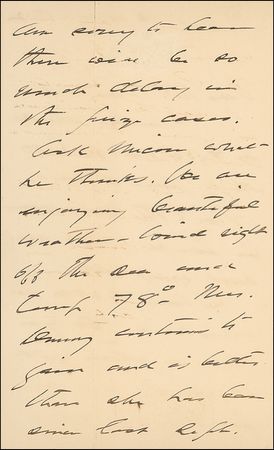 am sorry to hear
there will be so
much delay in
the prize cases.
Ask Micou what
he thinks. We are
enjoying beautiful
weather - wind right
off the sea and
temp 78° Mrs.
Dewey continues to
gain and is better
than she has been
since last Sept.